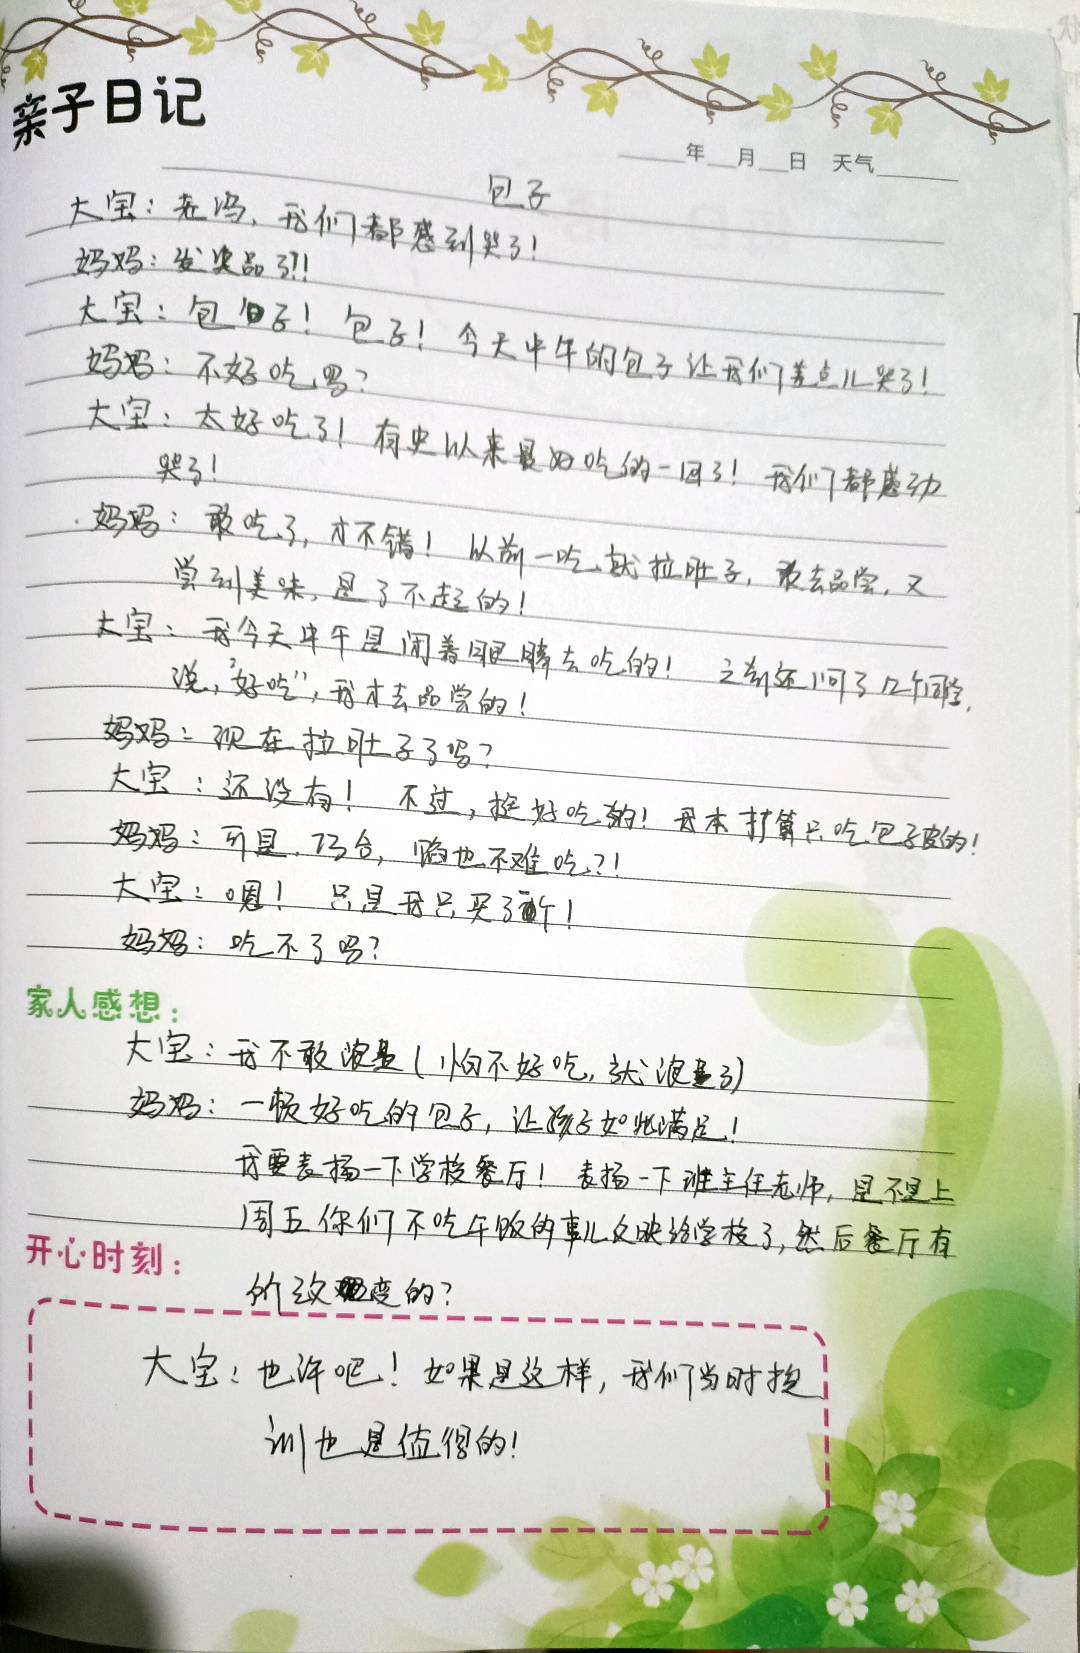 亲子日记
年 月 日 天气
包子
大宝：老冯，我们都感到哭了！
妈妈：发奖品了?!
大宝：包子！包子！今天中午的包子让我们差点儿哭了！
妈妈：不好吃吗？
大宝：太好吃了！有史以来最好吃的一回了！我们都感动
哭了！
妈妈：敢吃了，才不错！以前一吃就拉肚子，敢去品尝，又
尝到美味，是了不起的！
大宝：我今天中午是闭着眼睛去吃的！之前还问了几个同学，
说，“好吃”，我才去品尝的！
妈妈：现在拉肚子了吗？
大宝：还没有！不过，挺好吃的！我本打算只吃包子皮的！
妈妈：可是，巧合，馅也不难吃?！
大宝：嗯！只是我只买了个！
妈妈：吃不了吗？
家人感想：
大宝：我不敢浪费（怕不好吃，就浪费了）
妈妈：一顿好吃的包子，让孩子如此满足！
我要表扬一下学校餐厅！表扬一下班主任老师，是不是上
周五你们不吃午饭的事儿反映给学校了，然后餐厅有
所改变的？
开心时刻：
大宝：也许吧！如果是这样，我们当时挨
训也是值得的！